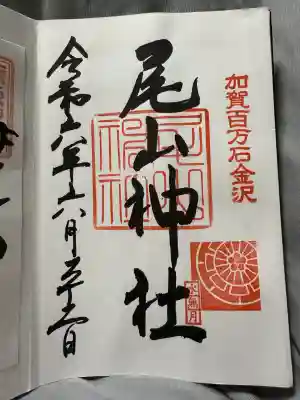 加賀百万石金沢
尾山神社
尾山神社
水無月
令和六年六月
日